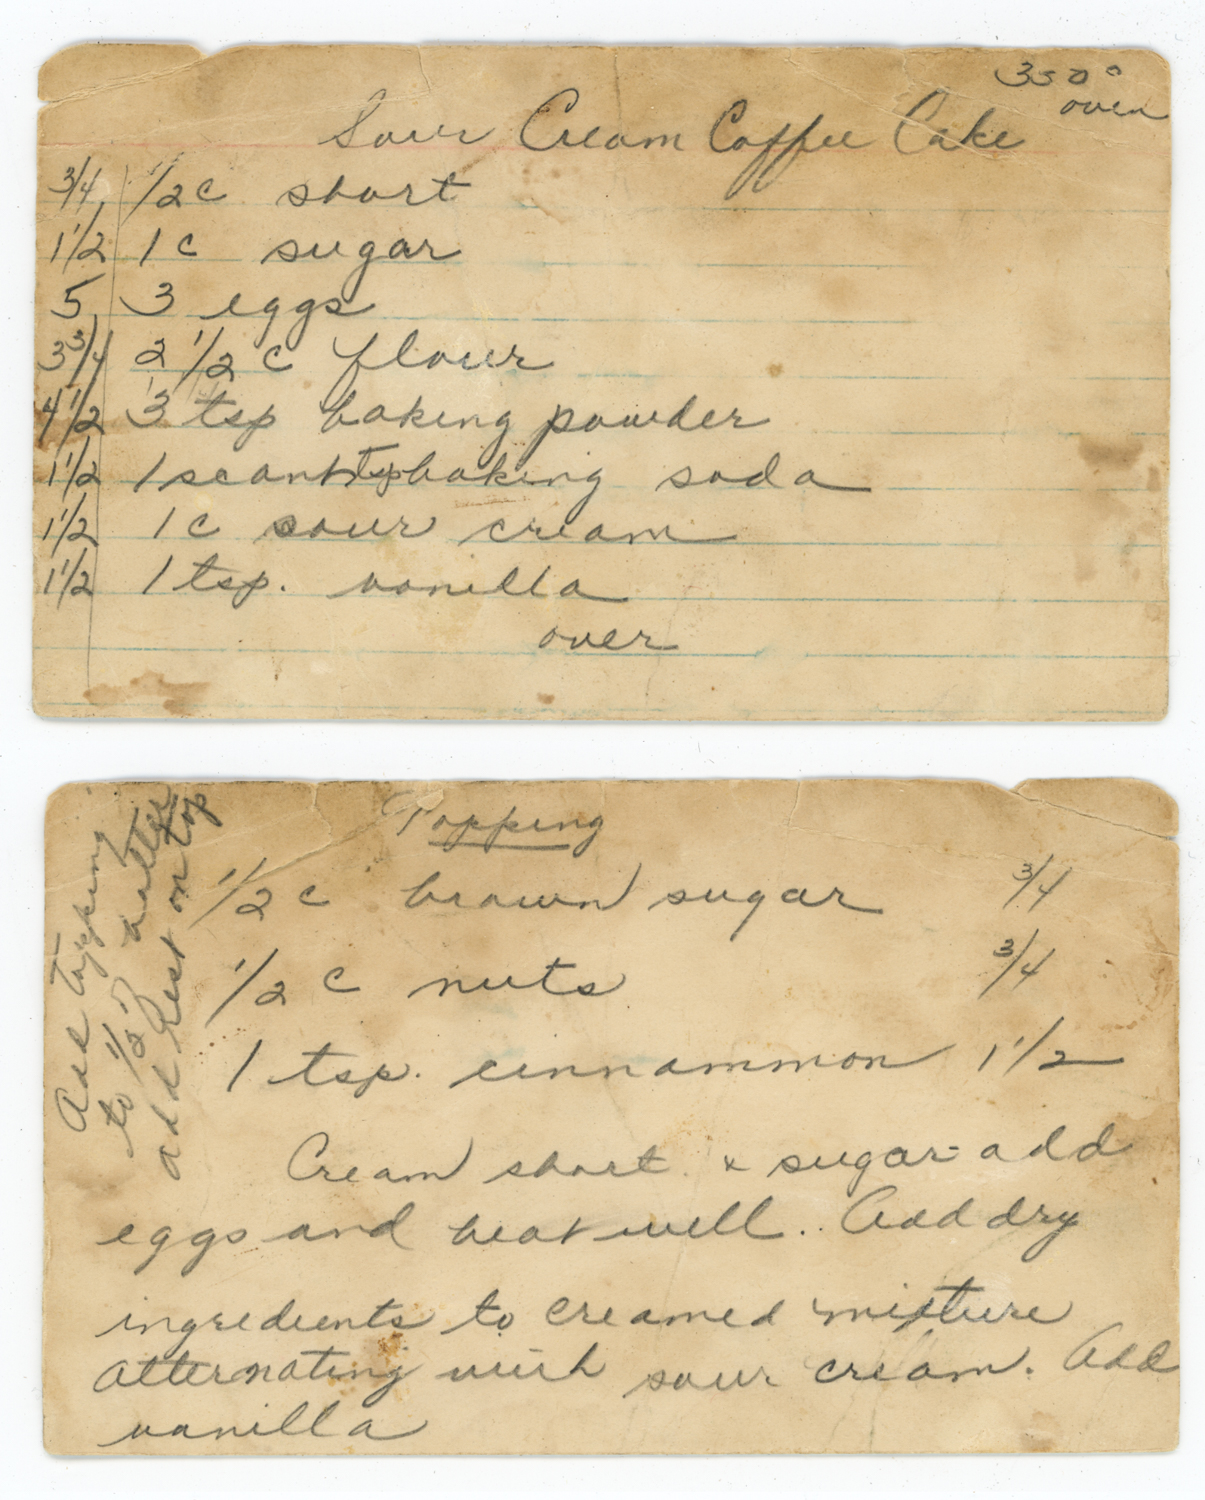 350°
oven
Sour Cream Coffee Cake
3/4 1/2 c short
1 1/2 1 c sugar
5 3 eggs
3 3/4 2 1/2 c flour
4 1/2 3 tsp baking powder
1 1/2 1 scant tsp baking soda
1 1/2 1 c sour cream
1 1/2 1 tsp. vanilla
over
Topping
1/2 c brown sugar 3/4
1/2 c nuts 3/4
1 tsp. cinnammon 1 1/2
Cream short & sugar - add
eggs and beat well. Add dry
ingredients to creamed mixture
alternating with sour cream. Add
vanilla
Add topping
to 1/2 batter
add Rest on top